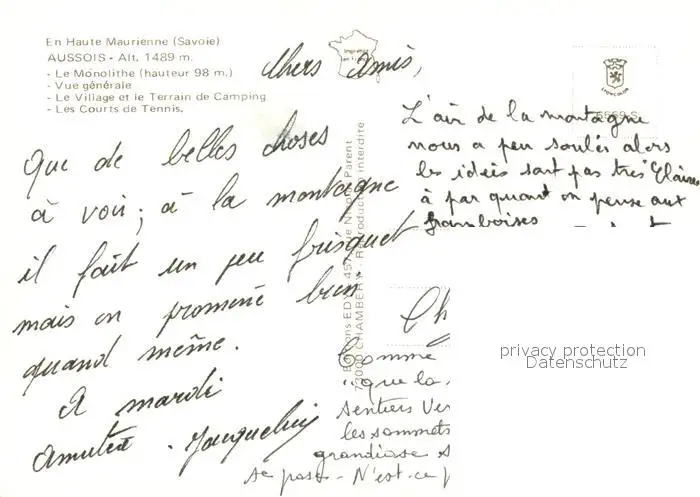 En Haute Maurienne (Savoie)
AUSSOIS - Alt. 1489 m.
- Le Monolithe (hauteur 98 m.)
- Vue générale
- Le Village et le Terrain de Camping
- Les Courts de Tennis.
Chers Amis,
Que de belles choses
à voir; à la montagne
il fait un peu frisquet
mais on promène bien
quand même.
A mardi
L'air de la montagne
nous a peu soulés alors
les idées sont pas très Claires
à par quant on pense aux
framboises
Ch
Comme
"que la
sentiers Ver
les sommets
grandiose s
se passe - N'est-ce p
73000 CHAMBERY - Reproduction interdite
privacy protection
Datenschutz